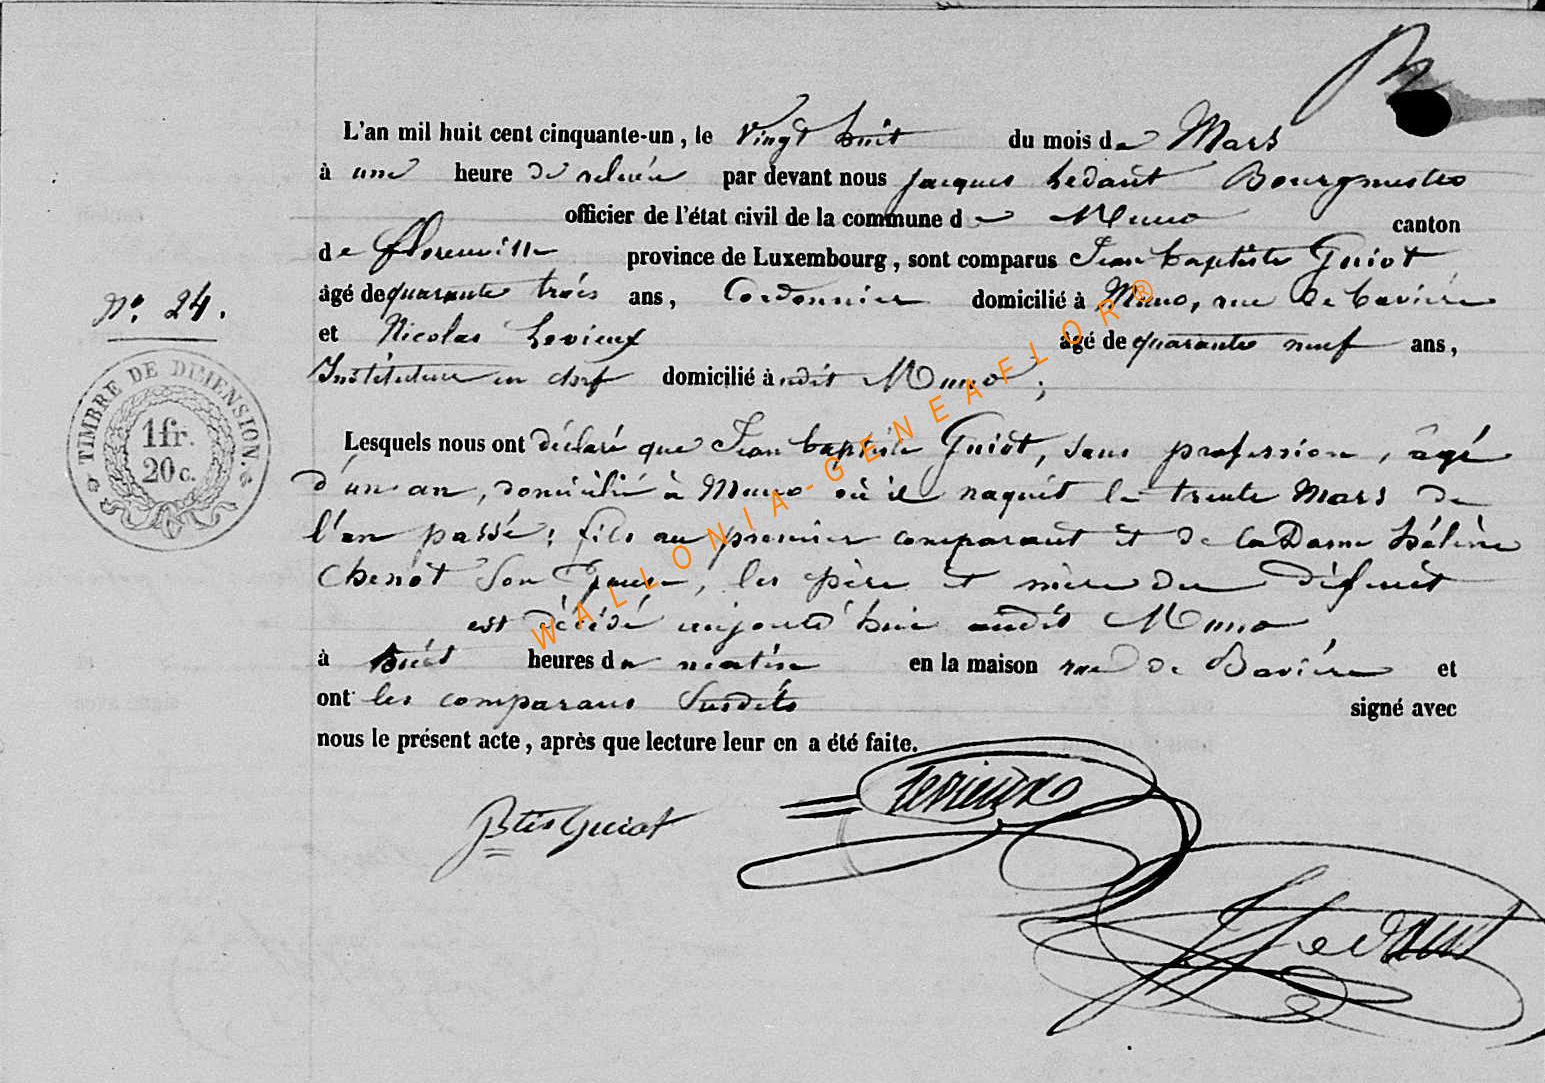 L'an mil huit cent cinquante-un, le Vingt huit du mois de Mars
à une heure de relevée par devant nous Jacques Ledant Bourgmestre
officier de l'état civil de la commune de Muno canton
de florenville province de Luxembourg, sont comparus Jean baptiste Guiot
âgé de quarante trois ans, Cordonnier domicilié à Muno, rue de bavière
et Nicolas Levieux âgé de quarante neuf ans,
Instituteur en chef domicilié à udit Muno;
N°. 24.
TIMBRE DE DIMENSION.
1 fr.
20 c.
Lesquels nous ont déclaré que Jean baptiste Guiot, sans profession, âgé
d'un an, domicilié à Muno où il naquit le trente Mars de
l'an passé; fils au premier comparant et de la Dame hélène
Chenot son Epouse, les père et mère du défunt
est décédé aujourd'hui audit Muno
à huit heures du matin en la maison rue de Bavière et
ont les comparans susdits signé avec
nous le présent acte, après que lecture leur en a été faite.
Levieux
Btis Guiot
J Ledant
WALLONIA-GENEAFLOR®